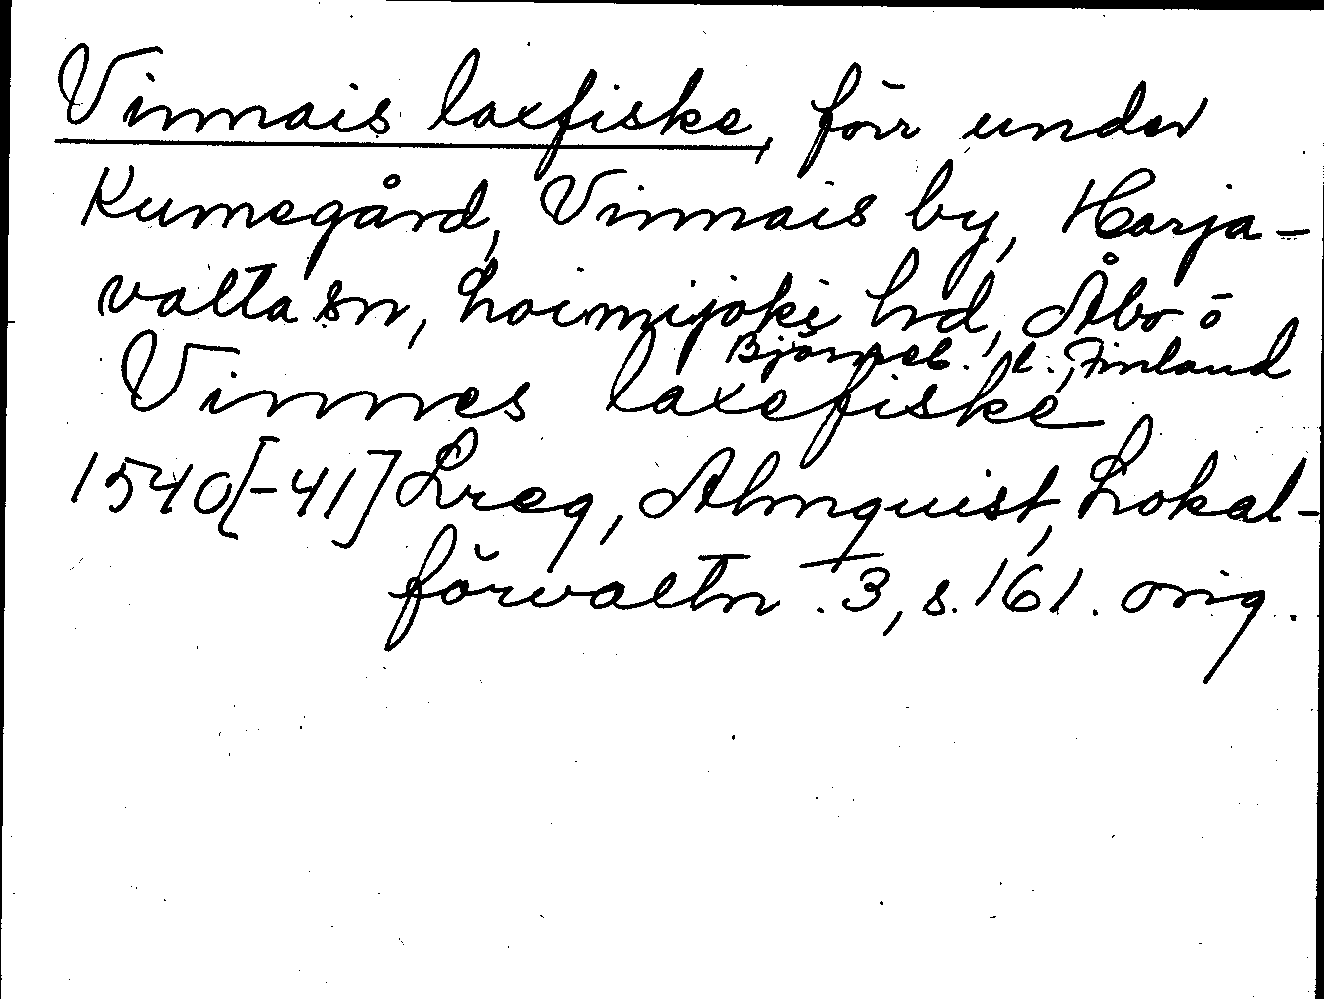 Vinnais laxfiske, förr under
Kumogård, Vinnais by, Harja-
valta sn, Loimijoki hd, Åbo o
Björneb. l., Finland
Vinnes laxefiske
1540[-41] Lreg, Almquist, Lokal-
förvaltn. 3, s. 161. orig.